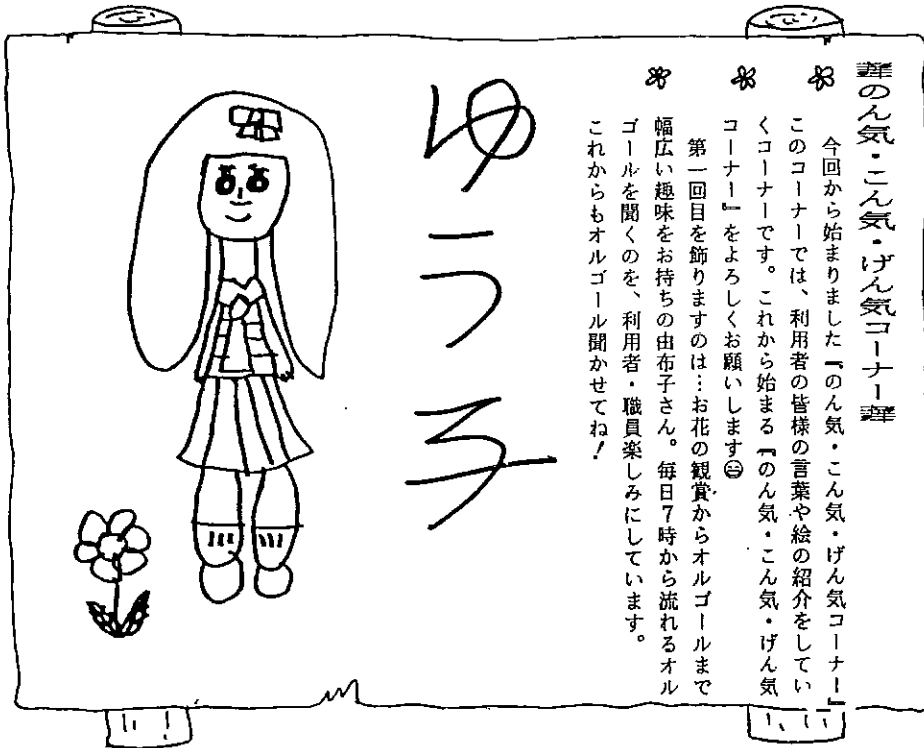 のん気・こん気・げん気コーナー
今回から始まりました『のん気・こん気・げん気コーナー』
このコーナーでは、利用者の皆様の言葉や絵の紹介をしてい
くコーナーです。これから始まる『のん気・こん気・げん気
コーナー』をよろしくお願いします
第一回目を飾りますのは…お花の観賞からオルゴールまで
幅広い趣味をお持ちの由布子さん。毎日7時から流れるオル
ゴールを聞くのを、利用者・職員楽しみにしています。
これからもオルゴール聞かせてね！
ゆう子